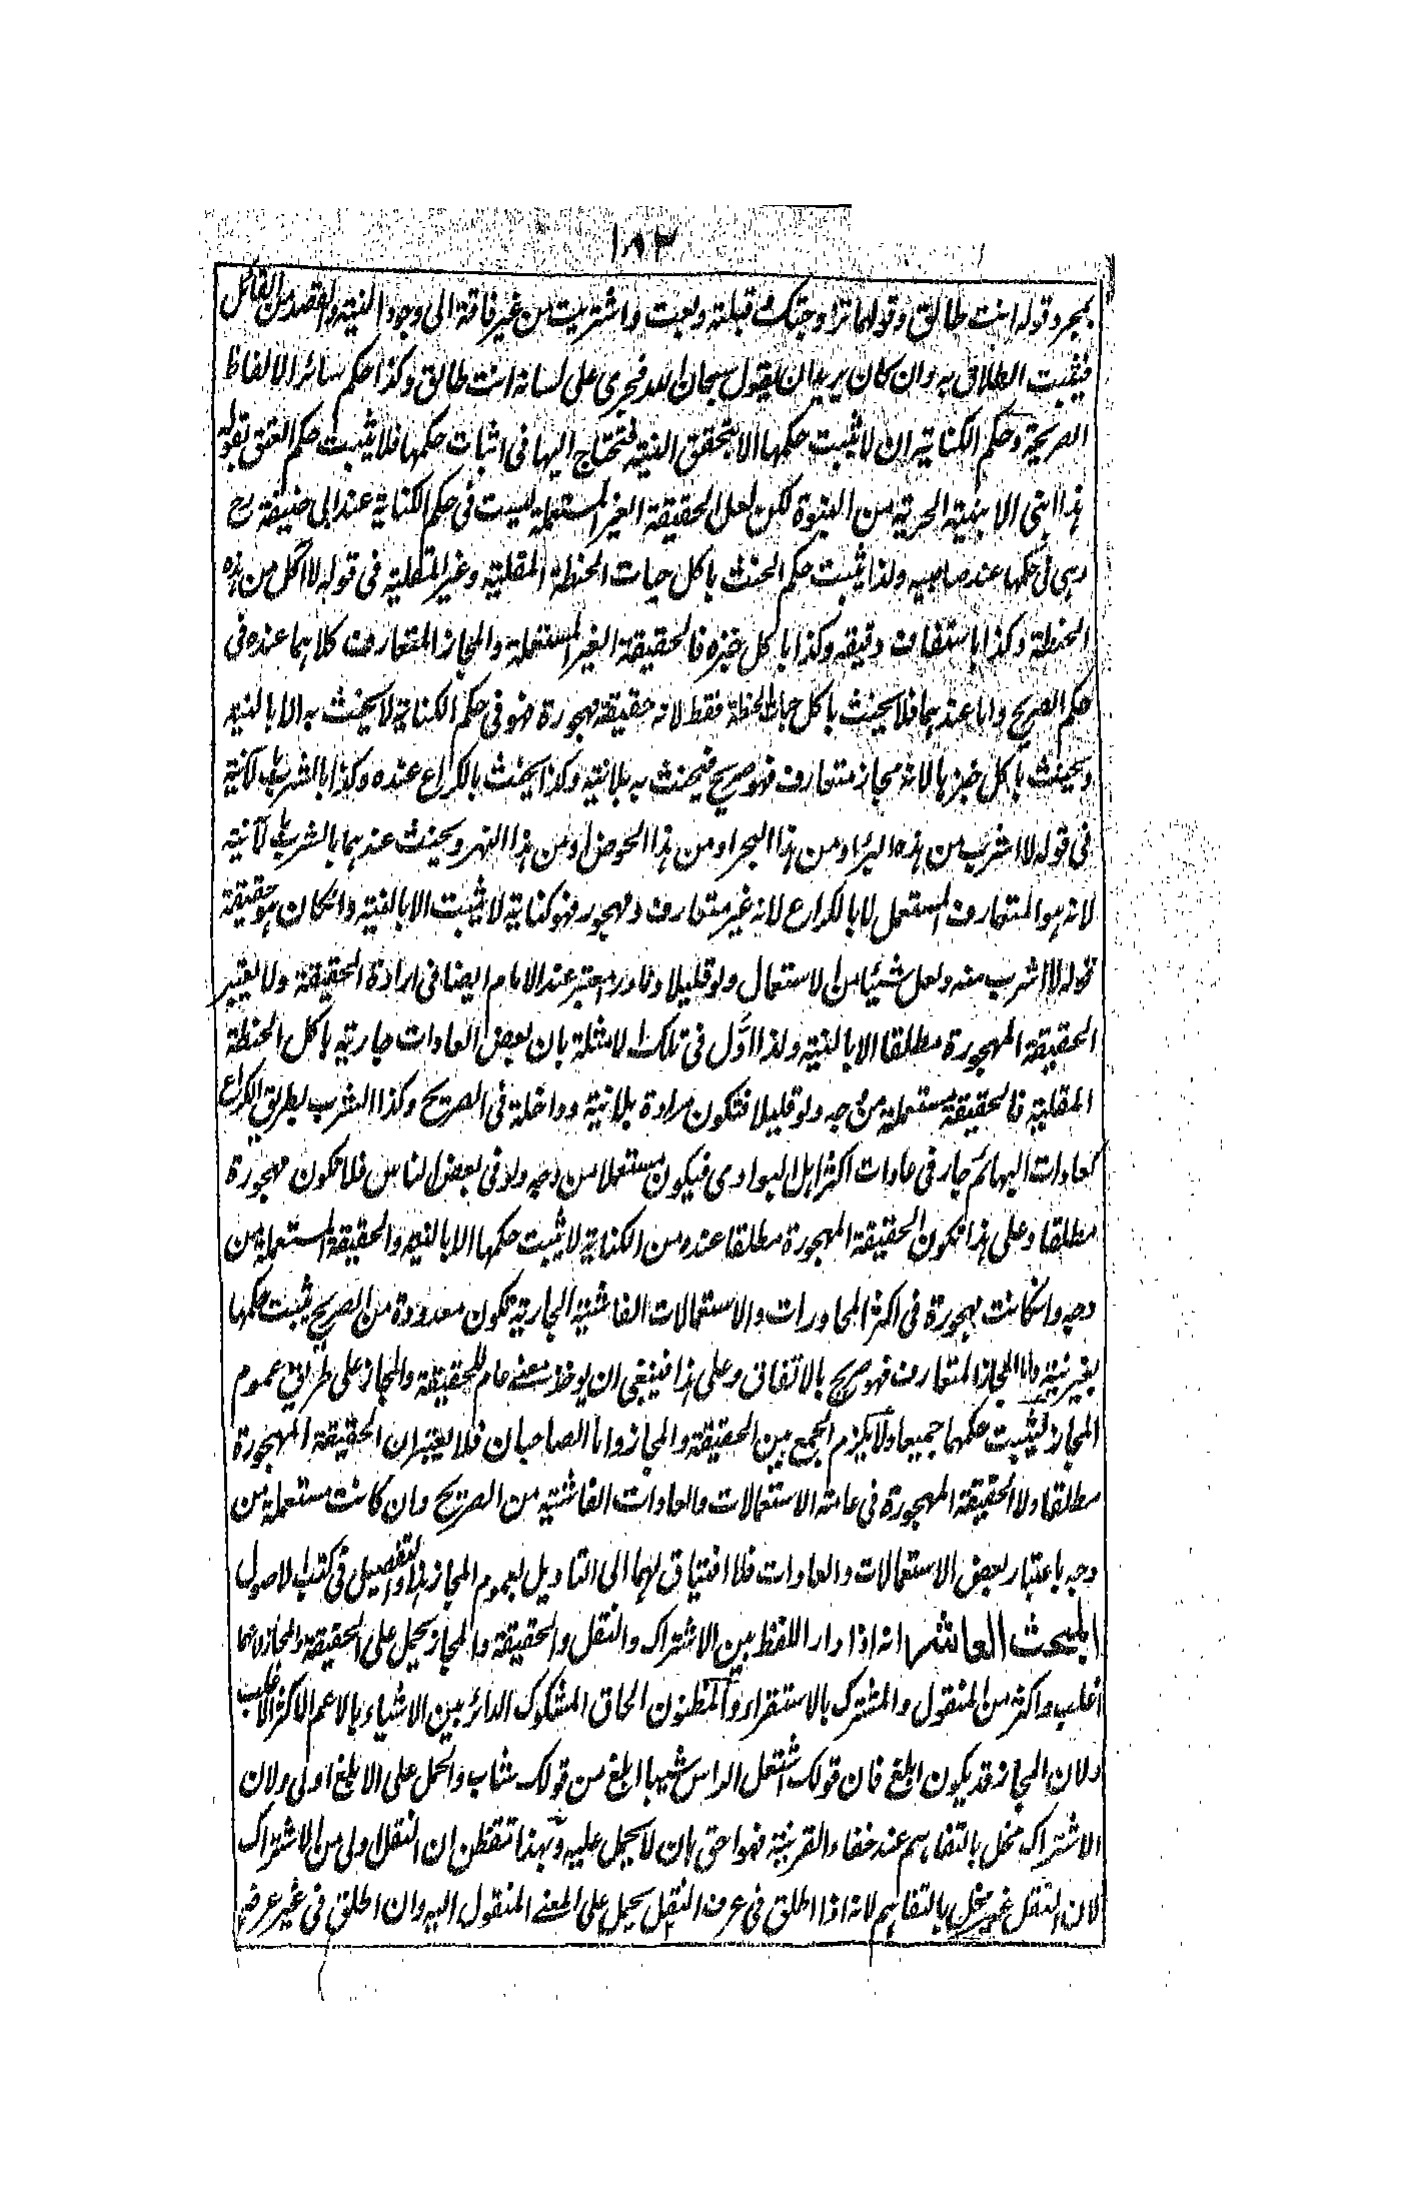 ١٨٢
بمجرد قوله انت طالق وقولهما تزاوجتك قبلته وبعت واشتريت من غير فاقة الى وجود النية والقصد من القائل
فيثبت الطلاق به وان كان يريد ان يقول سبحان الله فجرى على لسانه انت طالق وكذا حكم سائر الالفاظ
الصريحة وحكم الكناية ان لا يثبت حكمها الا بتحقق النية فتحتاج اليها فى اثبات حكمها فلا يثبت حكم العتق بقوله
هذا ابنى الا بنية الحرية من البنوة لكن لعل الحقيقة الغير المستعملة ليست فى حكم الكناية عند ابى حنيفة رح
وهى فى حكمها عند صاحبيه ولذا يثبت حكم الحنث باكل حبات الحنطة المقلية وغير المقلية فى قوله لا آكل من هذه
الحنطة وكذا باستفاف دقيقه وكذا باكل خبزه فالحقيقة الغير المستعملة والمجاز المتعارف كلاهما عنده فى
حكم الصريح واما عندهما فلا يحنث باكل حبات الحنطة فقط لانه حقيقة مهجورة فهو فى حكم الكناية لا يحنث به الا بالنية
ويحنث باكل خبزها لانه مجاز متعارف فهو صريح فيحنث به بلا نية وكذا يحنث بالكراع عنده وكذا بالشرب بالآنية
فى قوله لا اشرب من هذه البئر او من هذا البحر او من هذا الحوض او من هذا النهر ويحنث عندهما بالشرب بالآنية
لانه هو المتعارف المستعمل لا بالكراع لانه غير متعارف ومهجور فهو كناية لا يثبت الا بالنية وانكان هو حقيقة
قوله لا اشرب منه ولعل شيئا من الاستعمال ولو قليلا ونادرا معتبر عند الامام ايضا فى ارادة الحقيقة ولا يعتبر
الحقيقة المهجورة مطلقا الا بالنية ولذا اوّل فى تلك الامثلة بان بعض العادات جارية باكل الحنطة
المقلية فالحقيقة مستعملة من وجه ولو قليلا فتكون مرادة بلا نية وداخلة فى الصريح وكذا الشرب بطريق الكراع
كعادات البهائم جار فى عادات اكثر اهل البوادى فيكون مستعملا من وجه ولو فى بعض الناس فلا تكون مهجورة
مطلقا وعلى هذا تكون الحقيقة المهجورة مطلقا عنده من الكناية لا يثبت حكمها الا بالنية والحقيقة المستعملة من
وجه وانكانت مهجورة فى اكثر المحاورات والاستعمالات الفاشية الجارية تكون معدودة من الصريح يثبت حكمها
بغير نية واما المجاز المتعارف فهو صريح بالاتفاق وعلى هذا فينبغى ان يوخذ معنى عام للحقيقة والمجاز على طريق عموم
المجاز ليثبت حكمهما جميعا ولا يلزم الجمع بين الحقيقة والمجاز واما الصاحبان فلا يعتبران الحقيقة المهجورة
مطلقا ولا الحقيقة المهجورة فى عامة الاستعمالات والعادات الفاشية من الصريح وان كانت مستعملة من
وجه باعتبار بعض الاستعمالات والعادات فلا افتياق لهما الى التاويل بعموم المجاز هذا والتفصيل فى كتب الاصول
المبحث العاشر انه اذا دار اللفظ بين الاشتراك والنقل والحقيقة والمجاز يحمل على الحقيقة والمجاز لانهما
اغلب واكثر من المنقول والمشترك بالاستقراء والمظنون الحاق المشكوك الدائر بين الاشياء بالاعم الاكثر الاغلب
ولان المجاز قد يكون ابلغ فان قولك اشتعل الراس شيبا ابلغ من قولك شاب والحمل على الابلغ اولى ولان
الاشتراك مخل بالتفاهم عند خفاء القرينة فهو احق بان لا يحمل عليه وبهذا تتفطن ان النقل اولى من الاشتراك
لان النقل غير مخل بالتفاهم لانه اذا اطلق فى عرف النقل يحمل على المعنى المنقول اليه وان اطلق فى غير عرفه